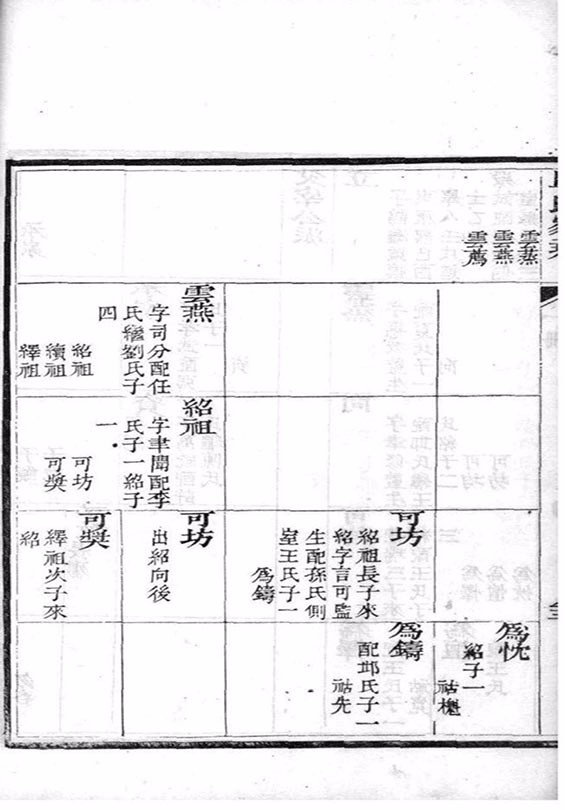 氏家
雲燕
雲燕
雲薦
雲燕
字司分配任
氏繼劉氏子
四
紹祖
續祖
繹祖
紹祖
字聿聞配李
氏子一紹子
一
可坊
可獎
可坊
紹祖長子來
紹字言可監
生配孫氏側
室王氏子一
爲鑄
可坊
出紹向後
可獎
繹祖次子來
紹
爲忱
紹子一
祜樾
爲鑄
配邱氏子一
祜先